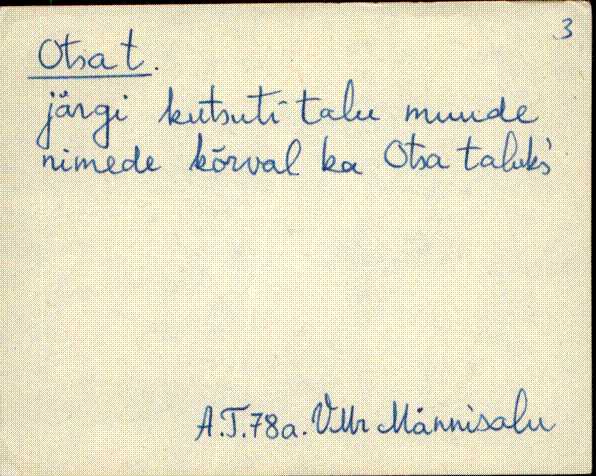 3
Otsa t.
järgi kutsuti talu muude
nimede kõrval ka Otsa taluks
A.T. 78a. VMr Männisalu